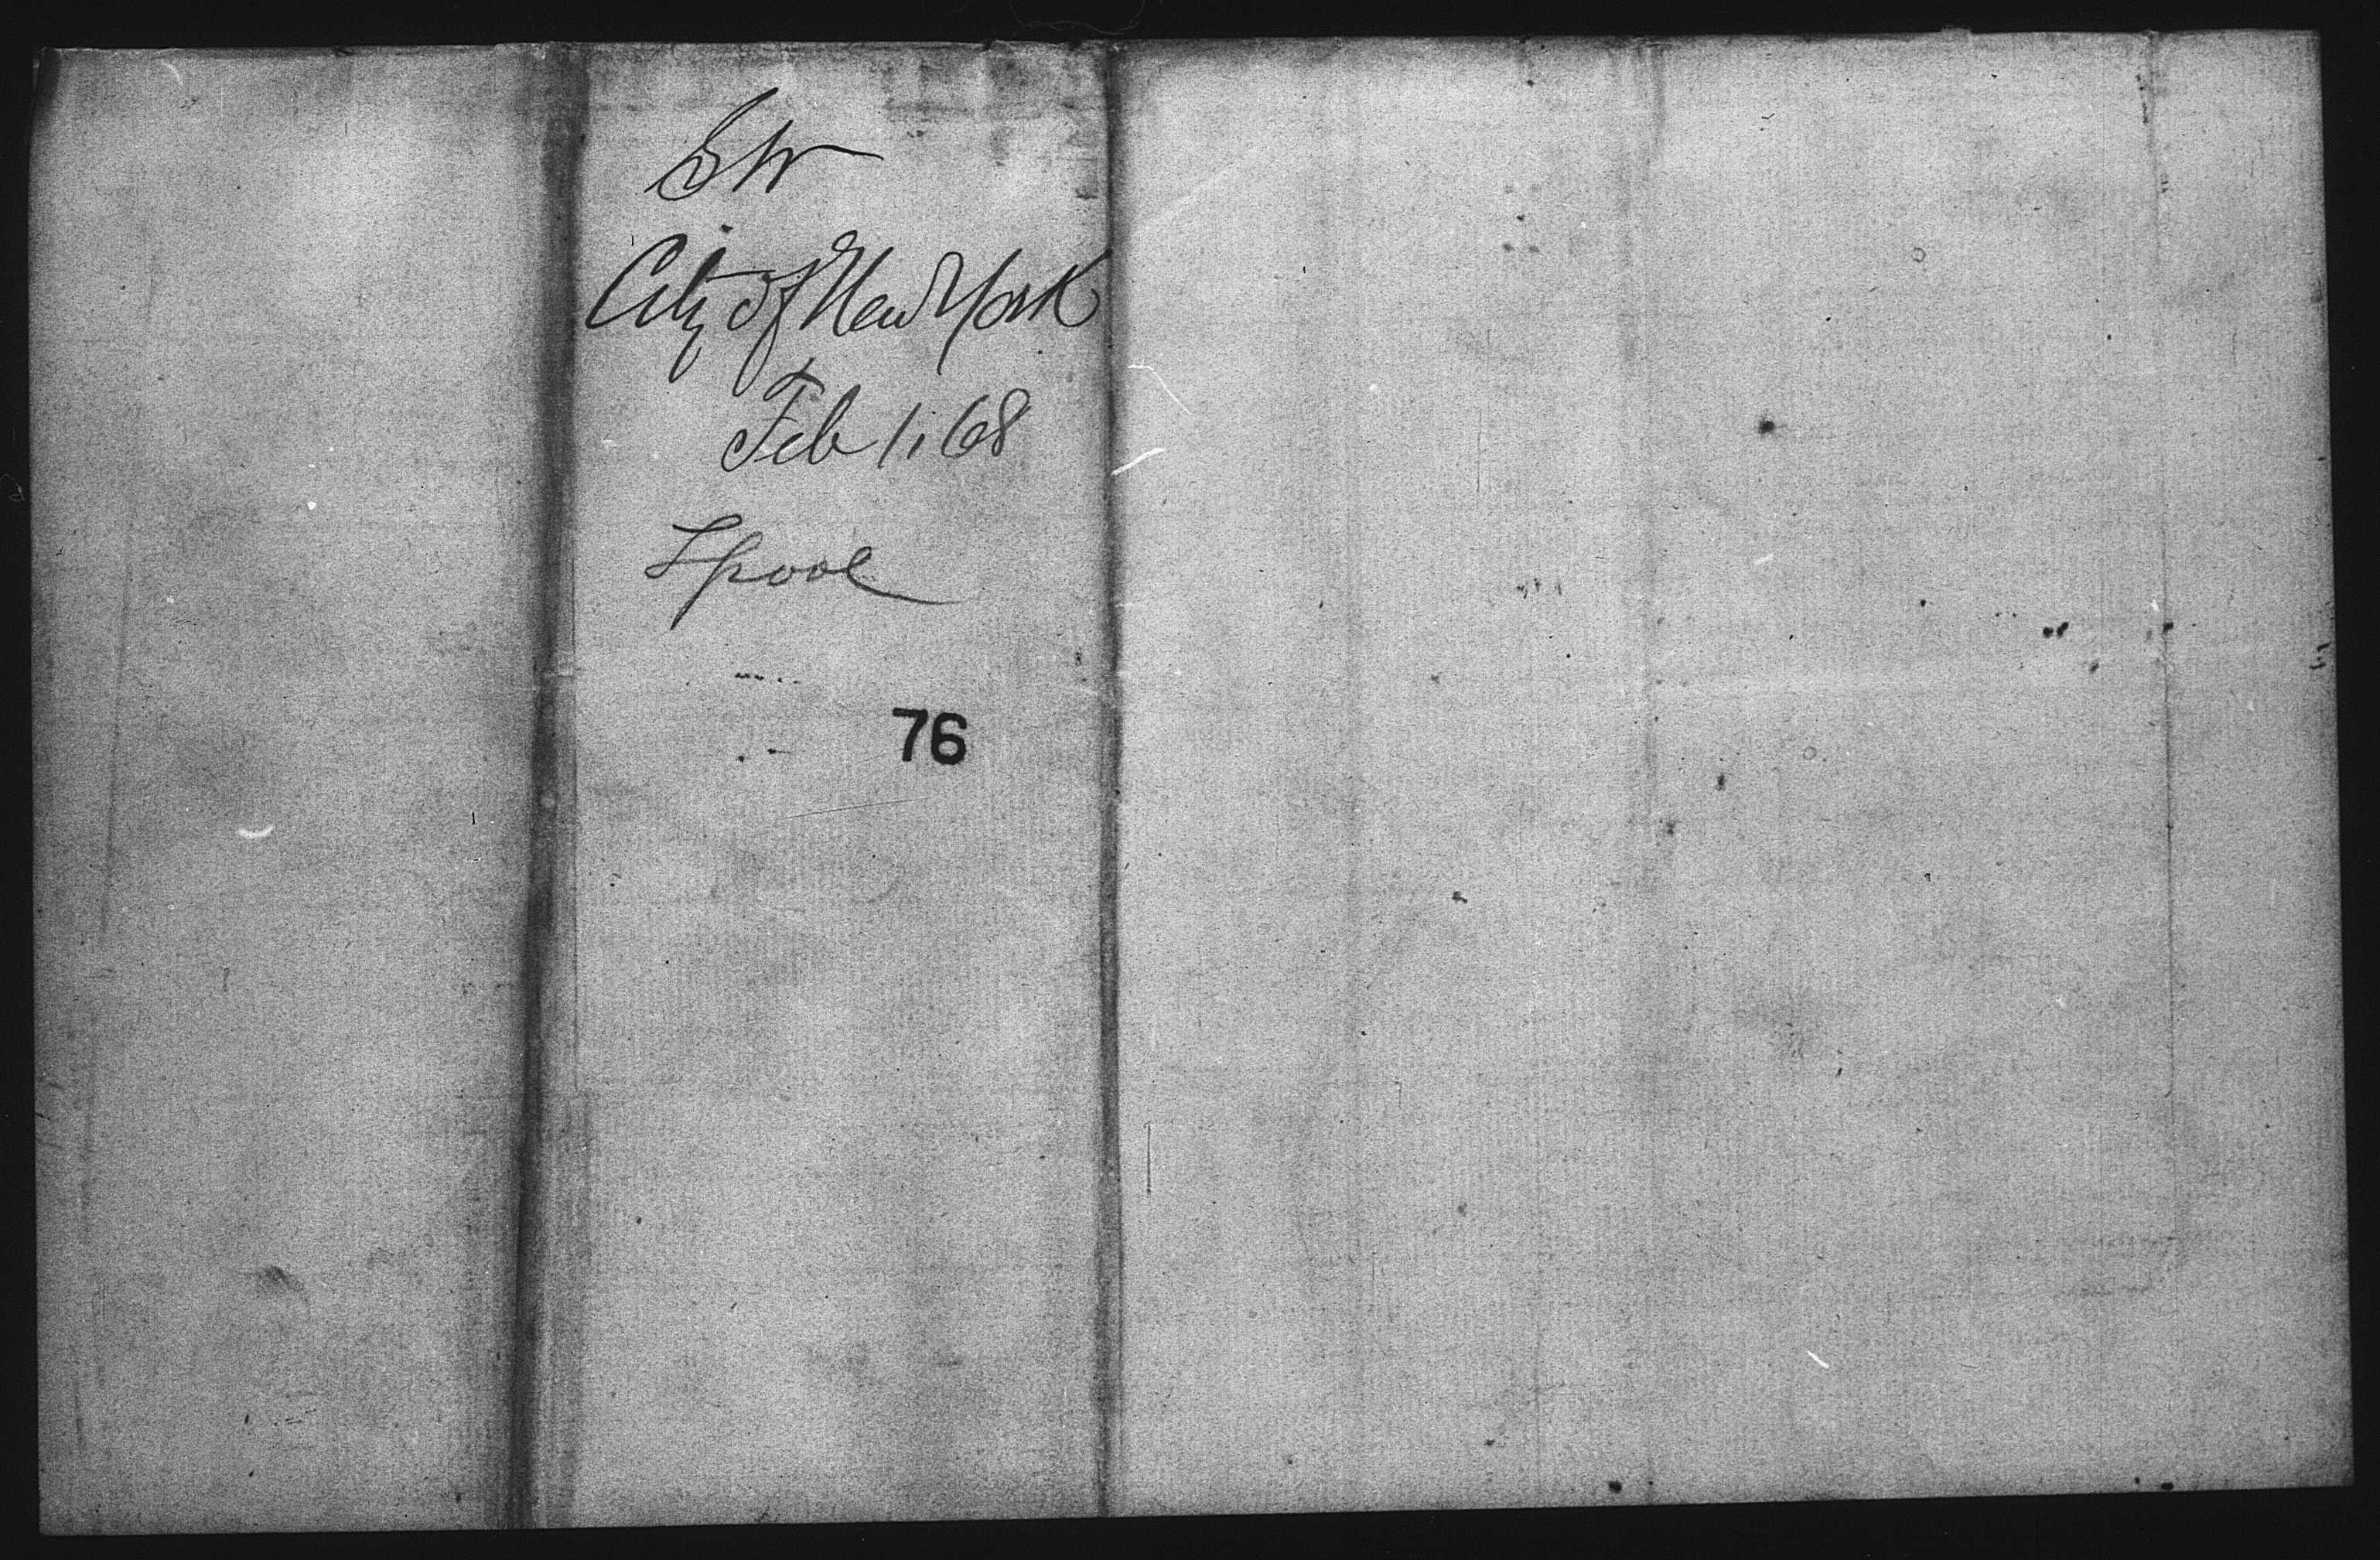 SW
City of New York
Feb 1, 68
Lpool
76